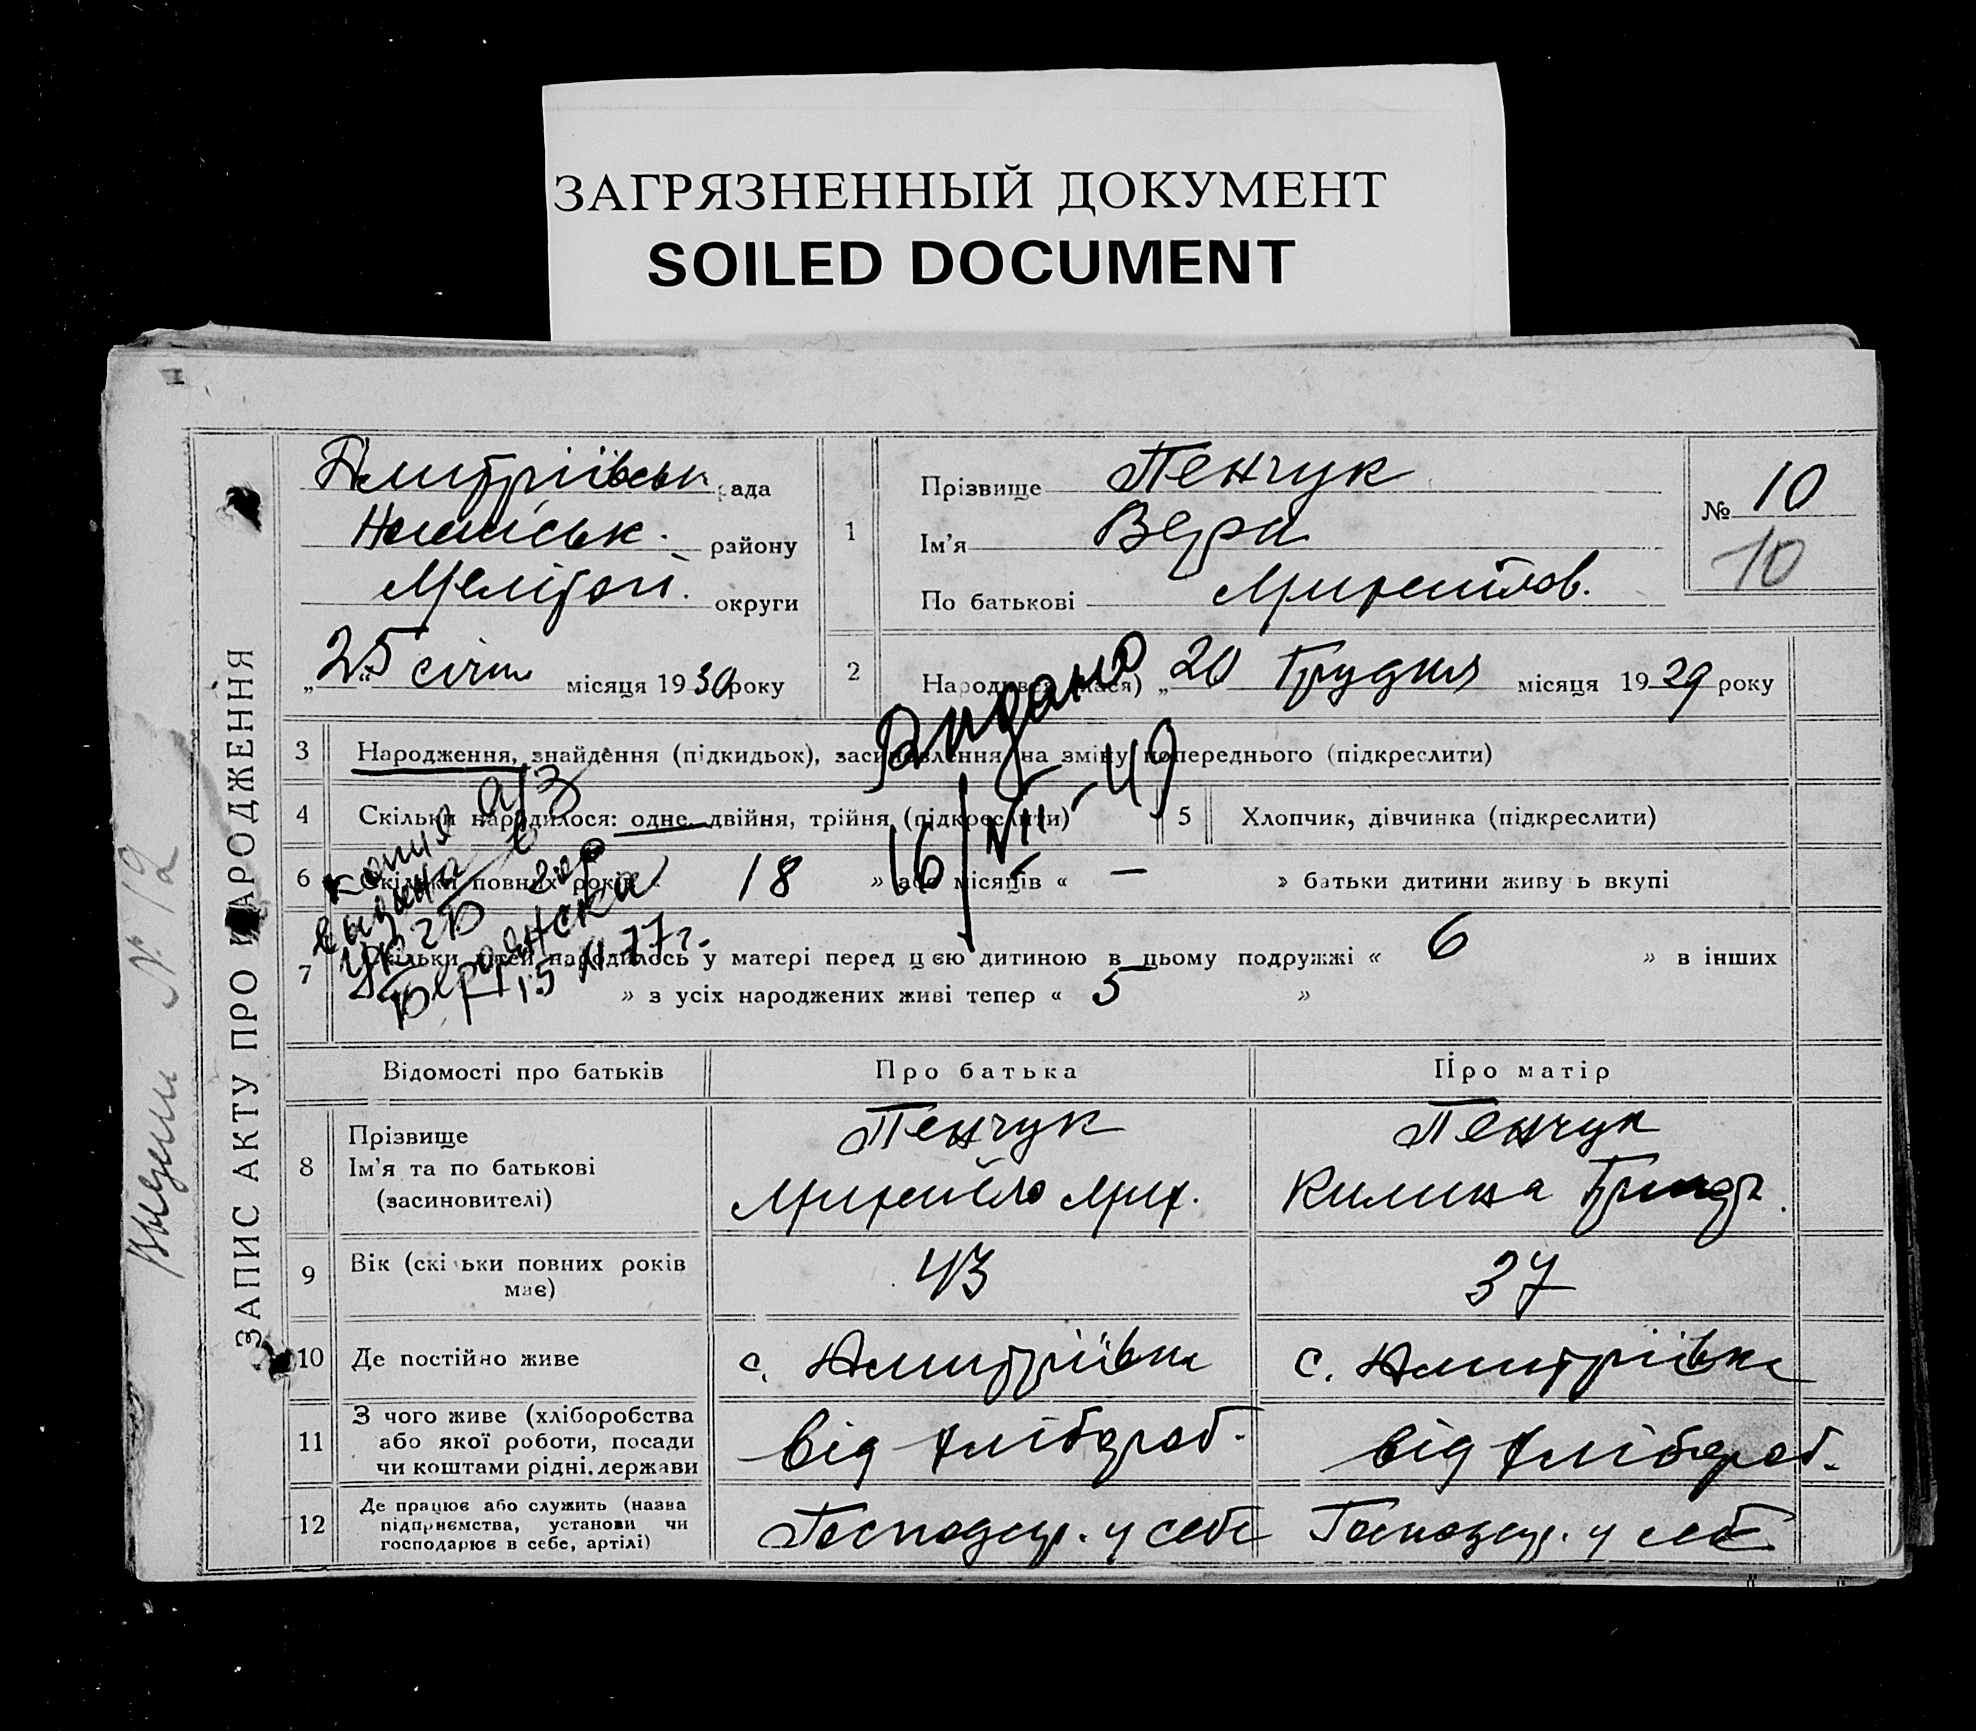 ЗАГРЯЗНЕННЫЙ ДОКУМЕНТ
SOILED DOCUMENT
ЗАПИС АКТУ ПРО НАРОДЖЕННЯ
Дмитріївськ рада
району
Мелітоп. округи
„25 січня місяця 1930 року
1
Прізвище Пенчук
Ім'я Вера
По батькові Михайлов.
№ 10
10
2
Народився (лася) „20 Грудня місяця 1929 року
Видано
16/VII-49
3 Народження, знайдення (підкидьок), засиновлення на зміну попереднього (підкреслити)
4 Скільки народилося: одне, двійня, трійня (підкреслити)
5 Хлопчик, дівчинка (підкреслити)
6 Скільки повних років « 18 » або місяців « — » батьки дитини живуть вкупі
7 Скільки дітей народилось у матері перед цією дитиною в цьому подружжі « 6 » в інших
» з усіх народжених живі тепер « 5 »
копия а/з
выдана в
гор
Бердянска
15 77г.
Відомості про батьків
Про батька
Про матір
8 Прізвище
Ім'я та по батькові
(засиновителі)
Пенчук
Михайло Мих.
Пенчук
Килина
9 Вік (скільки повних років
має)
43
37
10 Де постійно живе
с. Дмитрівка
с. Дмитрівка
11 З чого живе (хліборобства
або якої роботи, посади
чи коштами рідні, держави
від хлібороб.
від хлібороб.
12 Де працює або служить (назва
підприємства, установи чи
господарює в себе, артілі)
Господар. у себе
Господар. у себе